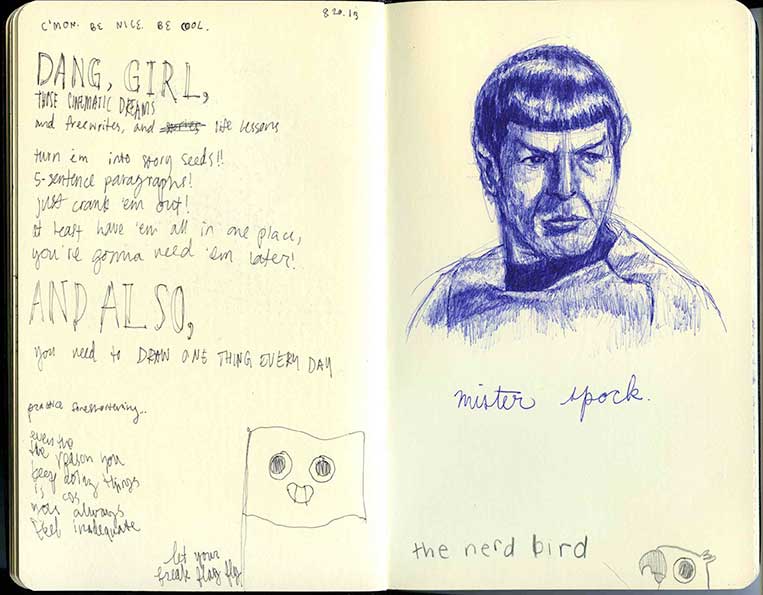 8 20. 13
C'MON. BE NICE. BE COOL.
DANG, GIRL,
THOSE CINEMATIC DREAMS
and freewrites, and life lessons
turn em into story seeds!!
5-sentence paragraphs!
just crank 'em out!
at least have 'em all in one place,
you're gonna need 'em later!
AND ALSO,
you need to DRAW ONE THING EVERY DAY
practice foreshortening..
even tho
the reason you
keep doing things
is cos
you always
feel inadequate
let your
freak flag fly
mister spock.
the nerd bird